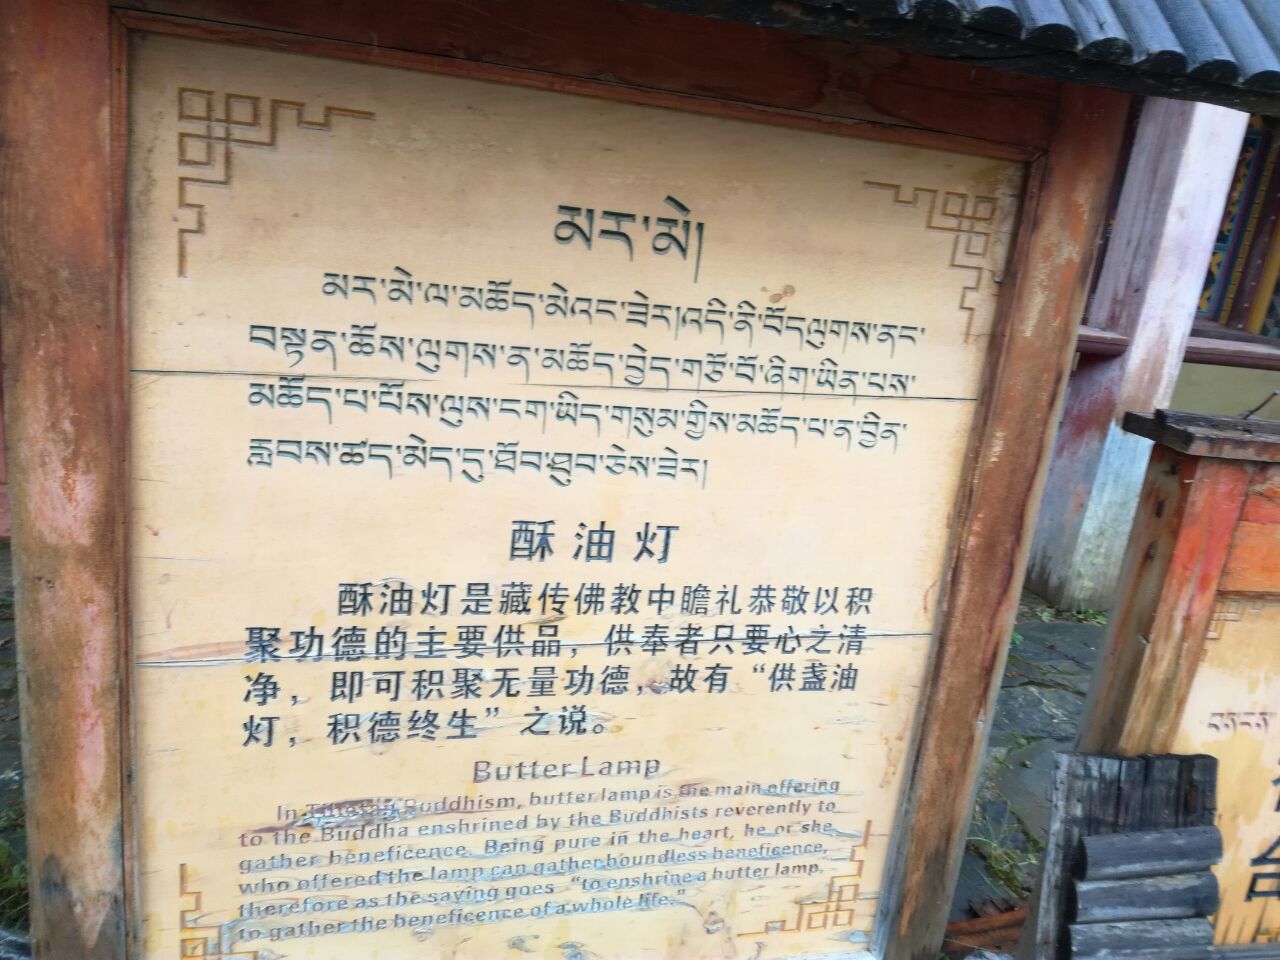 མར་མེ།
མར་མེ་ལ་མཆོད་མེའང་ཟེར།འདི་ནི་བོདལུགས་ནང་
བསྟན་ཆོས་ལུགས་ན་མཆོད་བྱེད་གཙོ་བོ་ཞིག་ཡིན་པས་
མཆོད་པ་པོས་ལུས་ངག་ཡིད་གསུམ་གྱིས་མཆོད་པ་ན་བྱིན་
རླབས་ཚད་མེད་དུ་ཐོབ་ཐུབ་ཅེས་ཟེར།
酥油灯
酥油灯是藏传佛教中瞻礼恭敬以积
聚功德的主要供品，供奉者只要心之清
净，即可积聚无量功德，故有“供盏油
灯，积德终生”之说。
Butter Lamp
In Tibetan Buddhism, butter lamp is the main offering
to the Buddha enshrined by the Buddhists reverently to
gather beneficence. Being pure in the heart, he or she
who offered the lamp can gather boundless beneficence,
therefore as the saying goes “to enshrine a butter lamp,
to gather the beneficence of a whole life.”